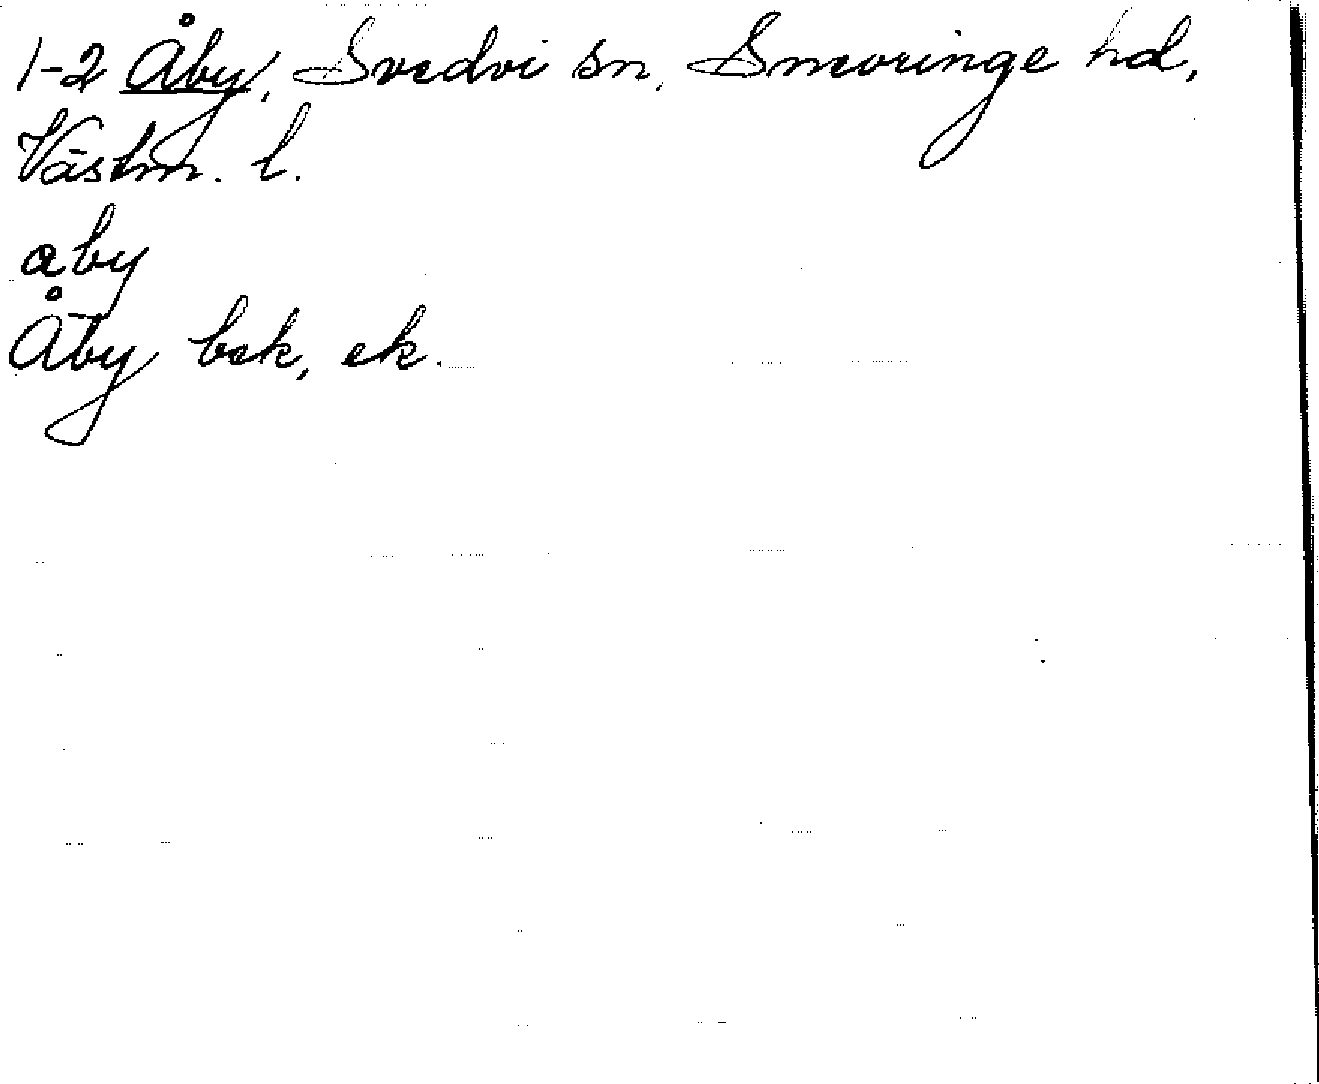 1-2 Åby, Svedvi sn, Snevringe hd,
Västm. l.
åby
Åby bek, ek.